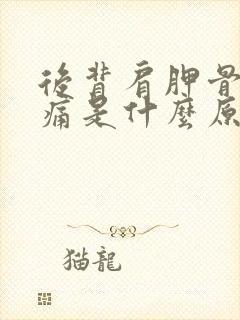 後背肩胛骨
痛是什麼原
猫龍